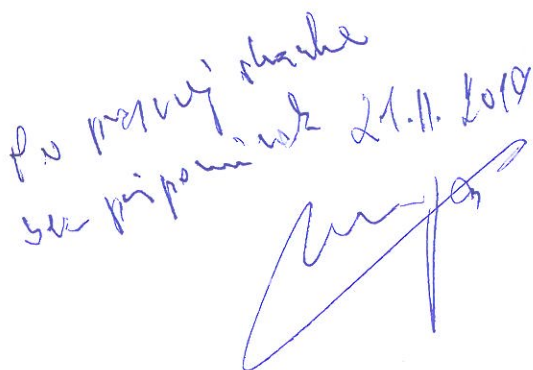 Po právnej stránke
bez pripomienok 21.11.2019